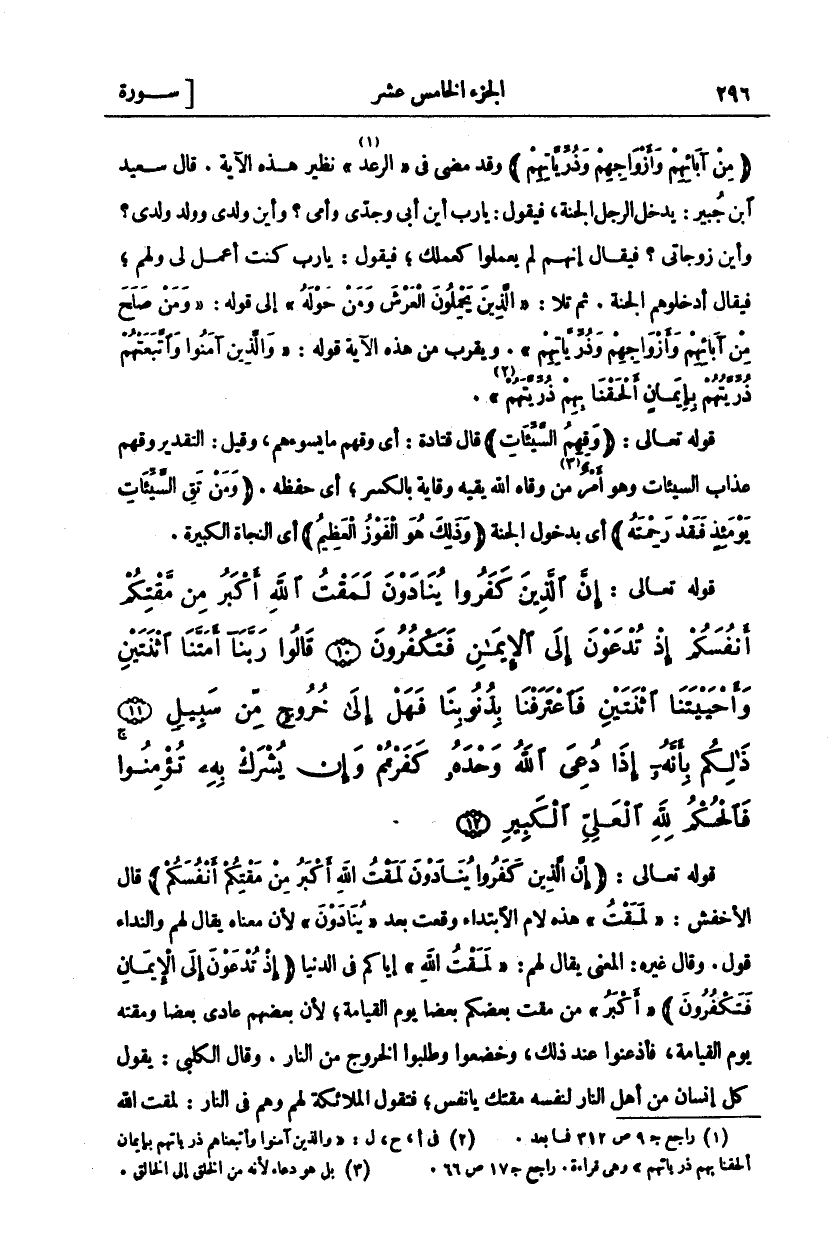 ٢٩٦ الجزء الخامس عشر [ ســـورة
﴿ مِنْ آبَائِهِمْ وَأَزْوَاجِهِمْ وَذُرِّيَّاتِهِمْ ﴾ وقد مضى فى « الرعد(١) » نظير هـذه الآية . قال سـعيد
آبن جُبير : يدخل الرجل الجنة، فيقول : يارب أين أبى وجدّى وأمى ؟ وأين ولدى وولد ولدى ؟
وأين زوجاتى ؟ فيقـال إنهـم لم يعملوا كعملك ؛ فيقول : يارب كنت أعمـل لى ولهم ؛
فيقال أدخلوهم الجنة . ثم تلا : « الَّذِينَ يَحْمِلُونَ الْعَرْشَ وَمَنْ حَوْلَهُ » إلى قوله : « وَمَنْ صَلَحَ
مِنْ آبَائِهِمْ وَأَزْوَاجِهِمْ وَذُرِّيَّاتِهِمْ » . ويقرب من هذه الآية قوله : « وَالَّذِينَ آمَنُوا وَاتَّبَعَتْهُمْ
ذُرِّيَّتُهُمْ بِإِيمَـانٍ أَلْحَقْنَا بِهِمْ ذُرِّيَّتَهُمْ(٢) » .
قوله تعـالى : ﴿ وَقِهِمُ السَّيِّئَاتِ ﴾ قال قتادة : أى وقهم مايسوءهم، وقيل : التقدير وقهم
عذاب السيئات وهو أَمْرٌ(٣) من وقاه الله يقيه وقاية بالكسر ؛ أى حفظه . ﴿ وَمَنْ تَقِ السَّيِّئَاتِ
يَوْمَئِذٍ فَـقَدْ رَحِمْتَهُ ﴾ أى بدخول الجنة ﴿ وَذَلِكَ هُوَ الْفَوْزُ الْعَظِيمُ ﴾ أى النجاة الكبيرة .
قوله تعـالى : إِنَّ ٱلَّذِينَ كَفَرُوا يُنَادَوْنَ لَمَقْتُ ٱللَّهِ أَكْبَرُ مِن مَّقْتِكُمْ
أَنفُسَكُمْ إِذْ تُدْعَوْنَ إِلَى ٱلْإِيمَـٰنِ فَتَكْفُرُونَ ۝١٠ قَالُوا رَبَّنَآ أَمَتَّنَا ٱثْنَتَيْنِ
وَأَحْيَيْتَنَا ٱثْنَتَيْنِ فَٱعْتَرَفْنَا بِذُنُوبِنَا فَهَلْ إِلَىٰ خُرُوجٍ مِّن سَبِيلٍ ۝١١
ذَٰلِكُم بِأَنَّهُۥٓ إِذَا دُعِىَ ٱللَّهُ وَحْدَهُۥ كَفَرْتُمْ وَإِن يُشْرَكْ بِهِۦ تُؤْمِنُـوا
فَٱلْحُكْمُ لِلَّهِ ٱلْعَـلِىِّ ٱلْـكَبِيرِ ۝١٢
قوله تعـالى : ﴿ إِنَّ الَّذِينَ كَفَرُوا يُنَـادَوْنَ لَمَقْتُ اللهِ أَكْبَرُ مِنْ مَقْتِكُمْ أَنْفُسَكُمْ ﴾ قال
الأخفش : « لَمَقْتُ » هذه لام الآبتداء وقعت بعد « يُنَادَوْنَ » لأن معناه يقال لهم والنداء
قول . وقال غيره : المعنى يقال لهم : « لَمَقْتُ اللهِ » إياكم فى الدنيا ﴿ إِذْ تُدْعَوْنَ إِلَى الْإِيمَـانِ
فَتَـكْفُرُونَ ﴾ « أَكْبَرُ » من مقت بعضكم بعضا يوم القيامة ؛ لأن بعضهم عادى بعضا ومقته
يوم القيامة ، فأذعنوا عند ذلك، وخضعوا وطلبوا الخروج من النار . وقال الكلبى : يقول
كل إنسان من أهل النار لنفسه مقتك يانفس ؛ فتقول الملائكة لهم وهم فى النار : لمقت الله
(١) راجع جـ ٩ ص ٣١٢ فـا بعد . (٢) فى أ ، ح ، ل : « والذين آمنوا وأتبعناهم ذرياتهم بإيمان
ألحقنا بهم ذرياتهم » وهى قراءة . راجع جـ ١٧ ص ٦٦ . (٣) بل هو دعاء لأنه من الخلق إلى الخالق .